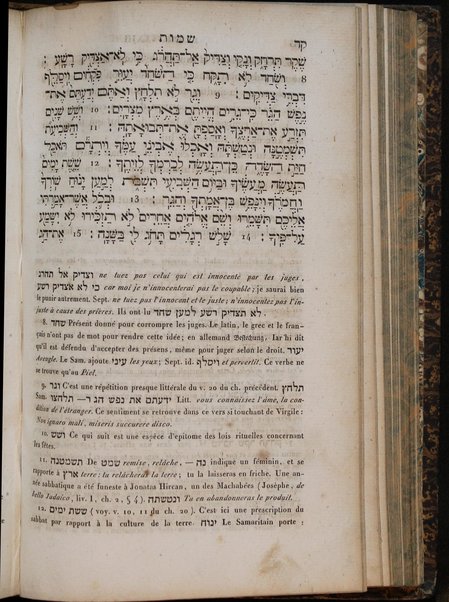 שמות
קד
שֶׁקֶר תִּרְחָק וְנָקִי וְצַדִּיק אַל־תַּהֲרֹג כִּי לֹא־אַצְדִּיק רָשָׁע ׃
8 וְשֹׁחַד לֹא תִקָּח כִּי הַשֹּׁחַד יְעַוֵּר פִּקְחִים וִיסַלֵּף
דִּבְרֵי צַדִּיקִים ׃ 9 וְגֵר לֹא תִלְחָץ וְאַתֶּם יְדַעְתֶּם אֶת־
נֶפֶשׁ הַגֵּר כִּי־גֵרִים הֱיִיתֶם בְּאֶרֶץ מִצְרָיִם ׃ 10 וְשֵׁשׁ שָׁנִים
תִּזְרַע אֶת־אַרְצֶךָ וְאָסַפְתָּ אֶת־תְּבוּאָתָהּ ׃ 11 וְהַשְּׁבִיעִת
תִּשְׁמְטֶנָּה וּנְטַשְׁתָּהּ וְאָכְלוּ אֶבְיֹנֵי עַמֶּךָ וְיִתְרָם תֹּאכַל
חַיַּת הַשָּׂדֶה כֵּן־תַּעֲשֶׂה לְכַרְמְךָ לְזֵיתֶךָ ׃ 12 שֵׁשֶׁת יָמִים
תַּעֲשֶׂה מַעֲשֶׂיךָ וּבַיּוֹם הַשְּׁבִיעִי תִּשְׁבֹּת לְמַעַן יָנוּחַ שׁוֹרְךָ
וַחֲמֹרֶךָ וְיִנָּפֵשׁ בֶּן־אֲמָתְךָ וְהַגֵּר ׃ 13 וּבְכֹל אֲשֶׁר־אָמַרְתִּי
אֲלֵיכֶם תִּשָּׁמֵרוּ וְשֵׁם אֱלֹהִים אֲחֵרִים לֹא תַזְכִּירוּ לֹא יִשָּׁמַע
עַל־פִּיךָ ׃ 14 שָׁלֹשׁ רְגָלִים תָּחֹג לִי בַּשָּׁנָה ׃ 15 אֶת־חַג
וצדיק אל תהרג ne tuez pas celui qui est innocenté par les juges,
כי לא אצדיק רשע car moi je n'innocenterai pas le coupable; je saurai bien
le punir autrement. Sept. ne tuez pas l'innocent et le juste; n'innocentez pas l'in-
juste à cause des prières. Ils ont lu לא תצדיק רשע למען שחד
8. שחד Présent donné pour corrompre les juges. Le latin, le grec et le fran-
çais n'ont pas de mot pour rendre cette idée; en allemand Bestechung. Iar'hi dit
qu'il est défendu d'accepter des présens, même pour juger selon le droit. יעור
Aveugle. Le Sam. ajoute עיני les yeux; Sept. id. ויסלף et pervertit. Ce verbe ne
se trouve qu'au Piel.
9. וגר C'est une répétition presque littérale du v. 20 du ch. précédent. תלחץ
Sam. תלחצו — ידעתם את נפש הגר Litt. vous connaissez l'âme, la con-
dition de l'étranger. Ce sentiment se retrouve dans ce vers si touchant de Virgile:
Non ignara mali, miseris succurere disco.
10. ושש Ce qui suit est une espèce d'epitome des lois rituelles concernant
les fêtes.
11. תשמטנה De שמט remise, relâche, — נה indique un féminin, et se
rapporte à ארץ terre: tu la relâcheras la terre; tu la laisseras en friche. Une an-
née sabbatique a été funeste à Jonatha Hircan, un des Machabées (Josèphe, de
Bello Judaico, liv. I, ch. 2, § 4). ונטשתה Tu en abandonneras le produit.
12. ששת ימים (voy. v. 10, 11 du ch. 20). C'est ici une prescription du
sabbat par rapport à la culture de la terre. ינוח Le Samaritain porte :